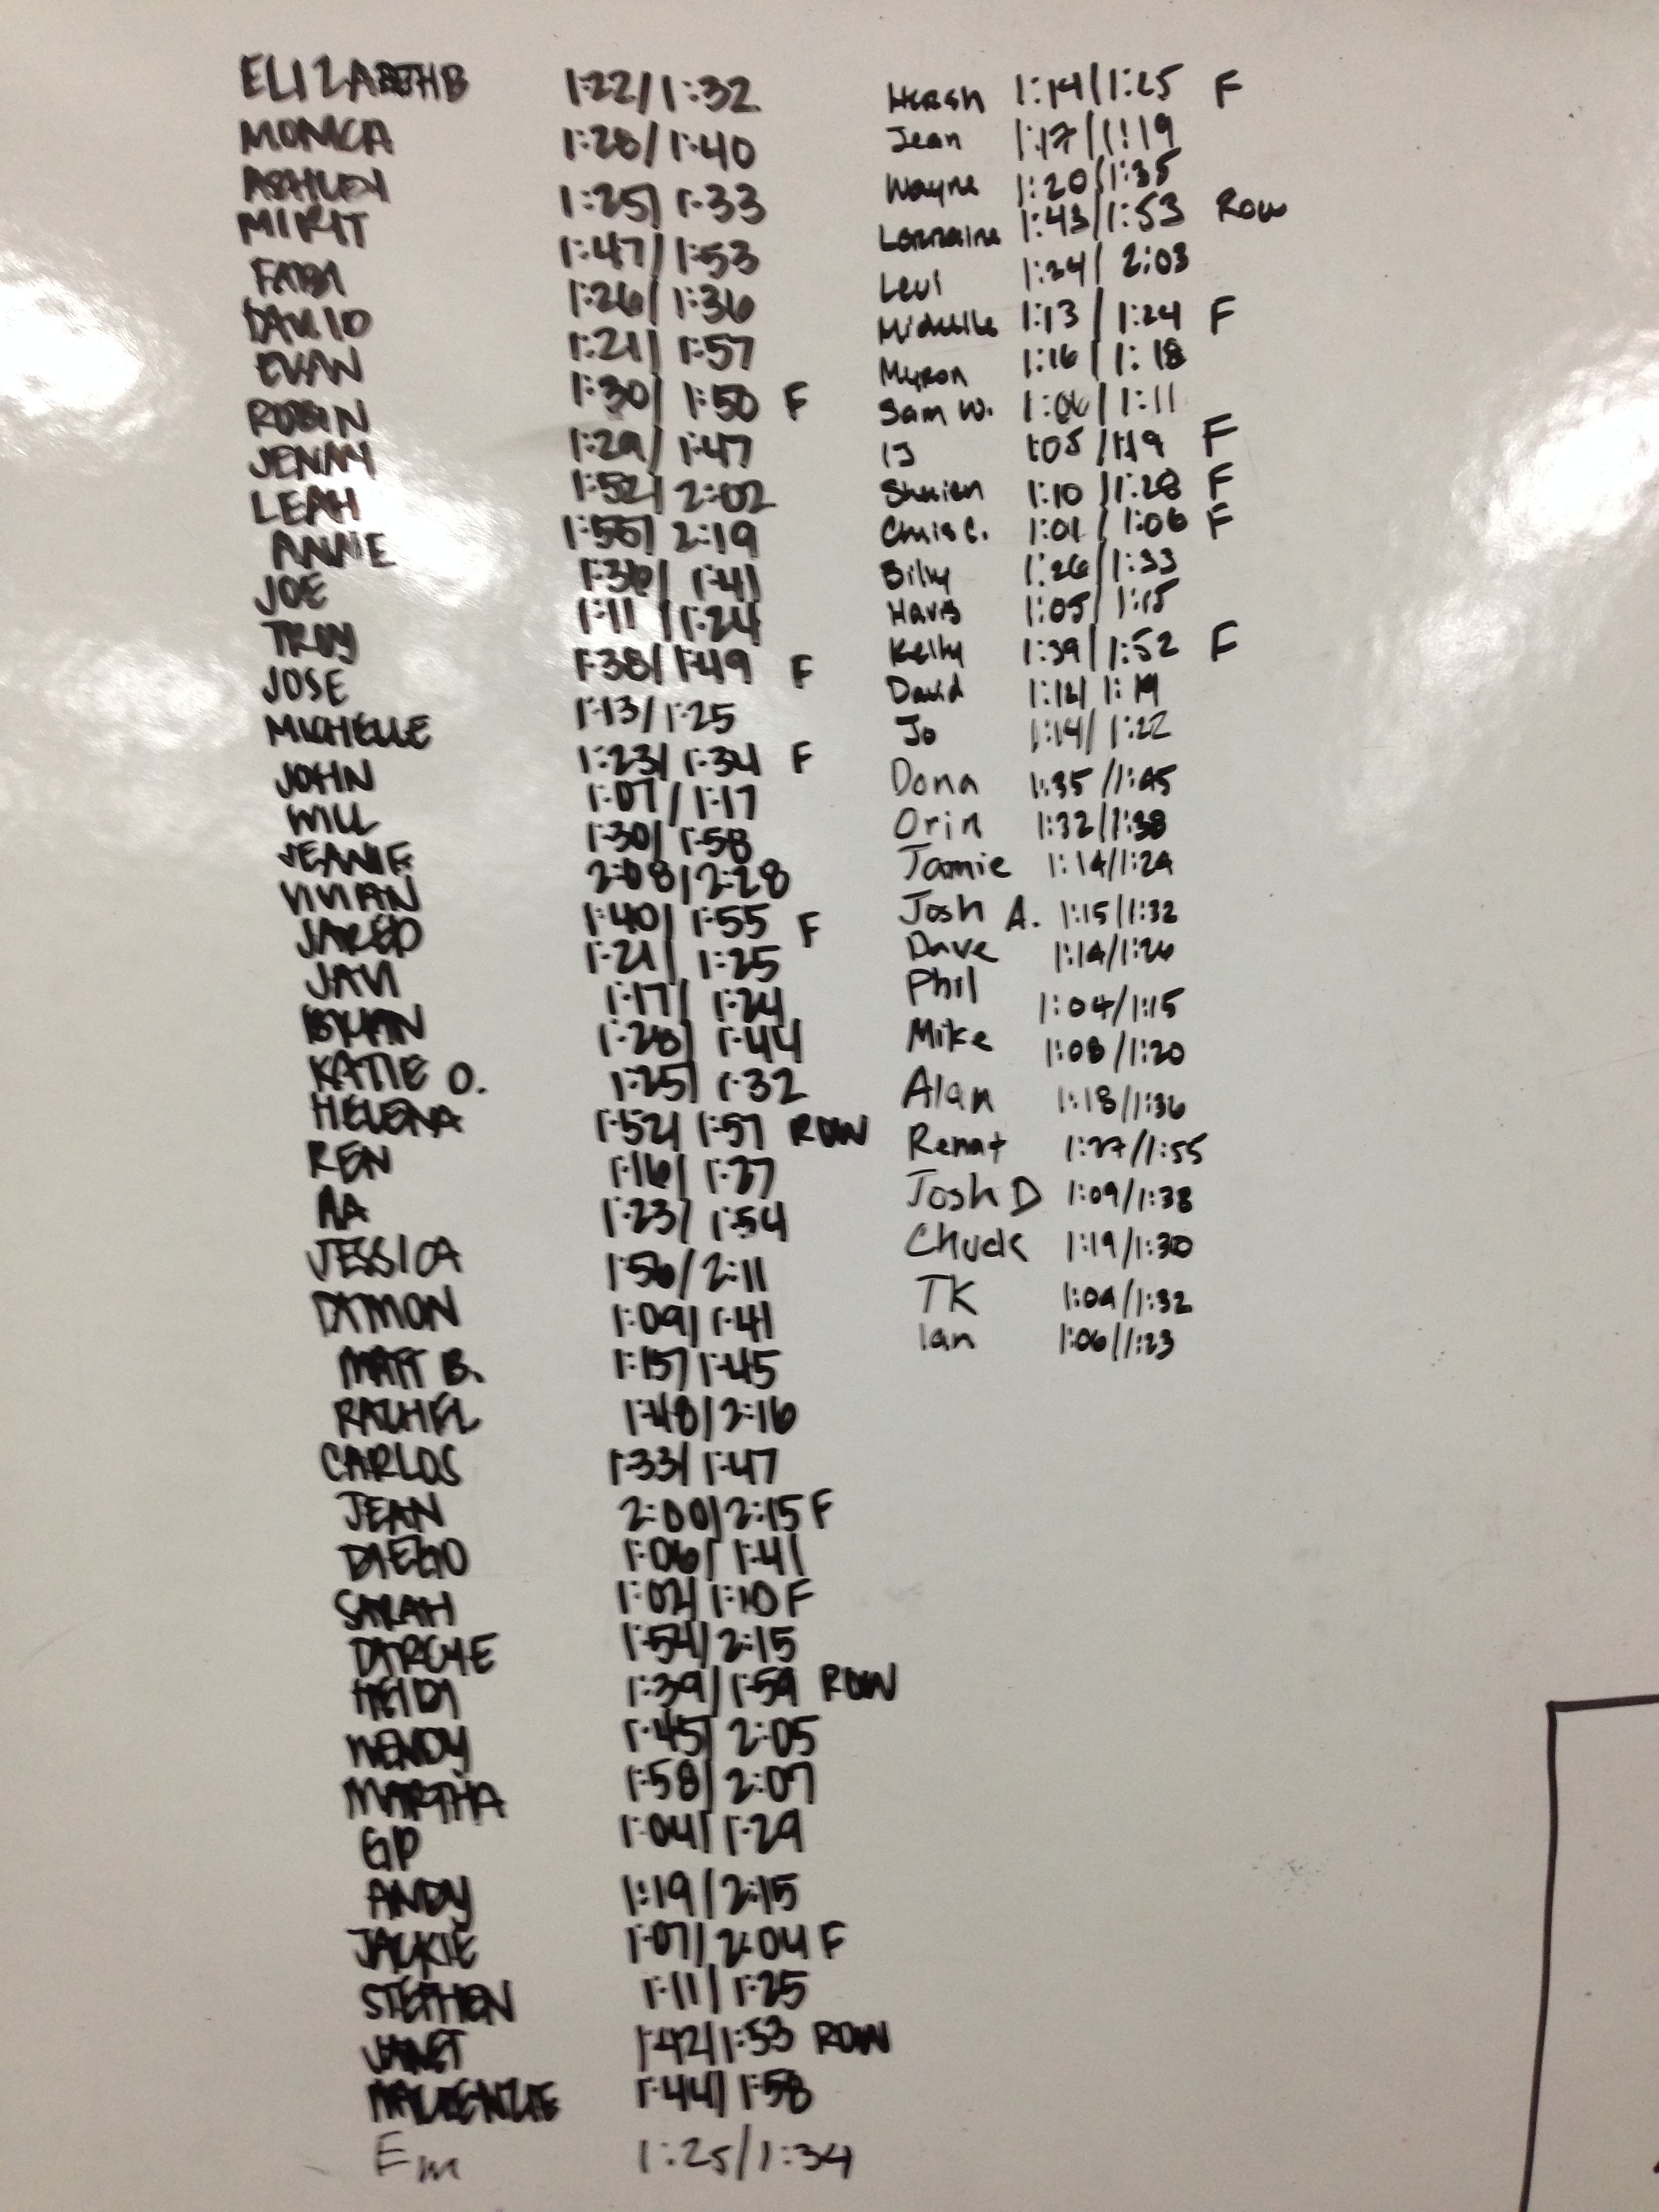 ELIZABETH B 1:22/1:32
MONICA 1:28/1:40
ASHLEY 1:25/1:33
MIRIT 1:47/1:53
FABI 1:26/1:36
DAVID 1:21/1:57
EVAN 1:30/1:50 F
ROBIN 1:29/1:47
JENNY 1:52/2:02
LEAH 1:58/2:19
ANNIE 1:36/1:41
JOE 1:11/1:24
TROY 1:38/1:49 F
JOSE 1:13/1:25
MICHELLE 1:23/1:34 F
JOHN 1:07/1:17
WILL 1:30/1:58
JEANIE 2:08/2:28
VIVIAN 1:40/1:55 F
JARED 1:21/1:25
JAVI 1:17/1:24
BRYAN 1:28/1:44
KATIE O. 1:25/1:32
HELENA 1:52/1:57 ROW
REN 1:16/1:27
AA 1:23/1:54
JESSICA 1:56/2:11
DAMON 1:09/1:41
MATT B. 1:15/1:45
RACHEL 1:48/2:16
CARLOS 1:33/1:47
JEAN 2:00/2:15 F
DIEGO 1:06/1:41
SARAH 1:02/1:10 F
DARCYE 1:54/2:15
HEIDI 1:39/1:59 ROW
WENDY 1:45/2:05
MARTHA 1:58/2:07
GP 1:04/1:29
ANDY 1:19/2:15
JACKIE 1:07/2:04 F
STEPHEN 1:11/1:25
JANET 1:42/1:53 ROW
MACKENZIE 1:44/1:58
Em 1:25/1:34
Hersh 1:14/1:25 F
Jean 1:17/1:19
Wayne 1:20/1:35
Lorraine 1:43/1:53 Row
Levi 1:34/2:03
Michelle 1:13/1:24 F
Myron 1:16/1:18
Sam W. 1:06/1:11
IJ 1:05/1:19 F
1:10/1:28 F
Chris C. 1:01/1:06 F
Billy 1:26/1:33
1:05/1:15
Kelly 1:39/1:52 F
David 1:12/1:19
Jo 1:14/1:22
Dona 1:35/1:45
Orin 1:32/1:38
Jamie 1:14/1:29
Josh A. 1:15/1:32
Dave 1:14/1:26
Phil 1:04/1:15
Mike 1:08/1:20
Alan 1:18/1:36
Renat 1:27/1:55
Josh D 1:09/1:38
Chuck 1:19/1:30
TK 1:09/1:32
Ian 1:06/1:23